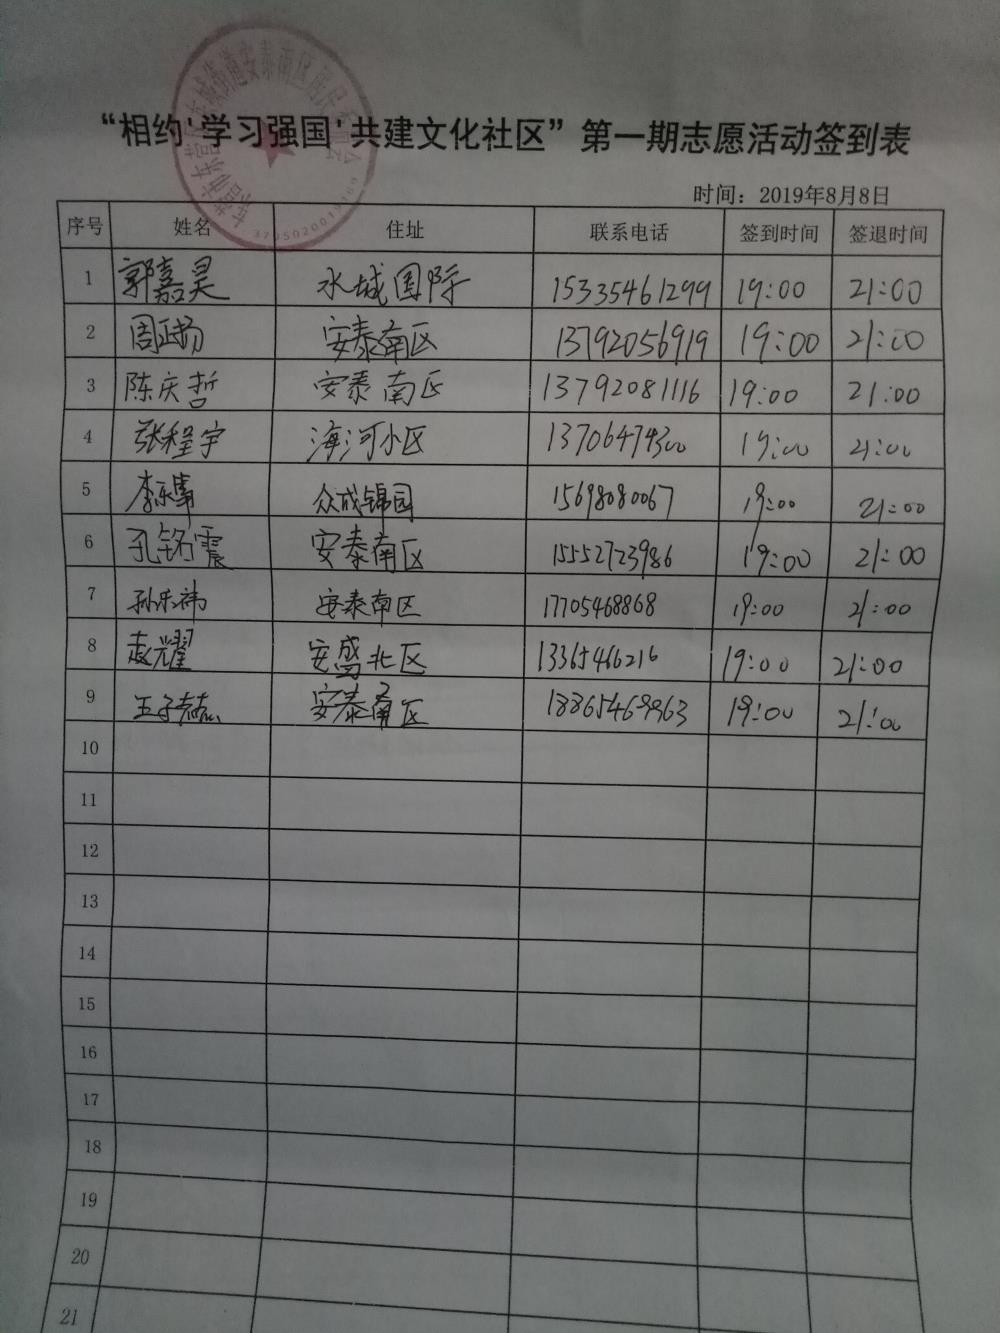 “相约'学习强国'共建文化社区”第一期志愿活动签到表
时间：2019年8月8日
序号 姓名 住址 联系电话 签到时间 签退时间
1 郭嘉昊 水城国际 15335461299 19:00 21:00
2 周正扬 安泰南区 13792056919 19:00 21:00
3 陈庆哲 安泰南区 13792081116 19:00 21:00
4 张程宇 海河小区 13706474300 19:00 21:00
5 李 众成锦园 15698080067 19:00 21:00
6 孔铭震 安泰南区 15552723986 19:00 21:00
7 孙乐祎 安泰南区 17705468868 19:00 21:00
8 赵耀 安盛北区 13365466216 19:00 21:00
9 王子 安泰南区 19:00 21:00
10
11
12
13
14
15
16
17
18
19
20
21
3705020019169